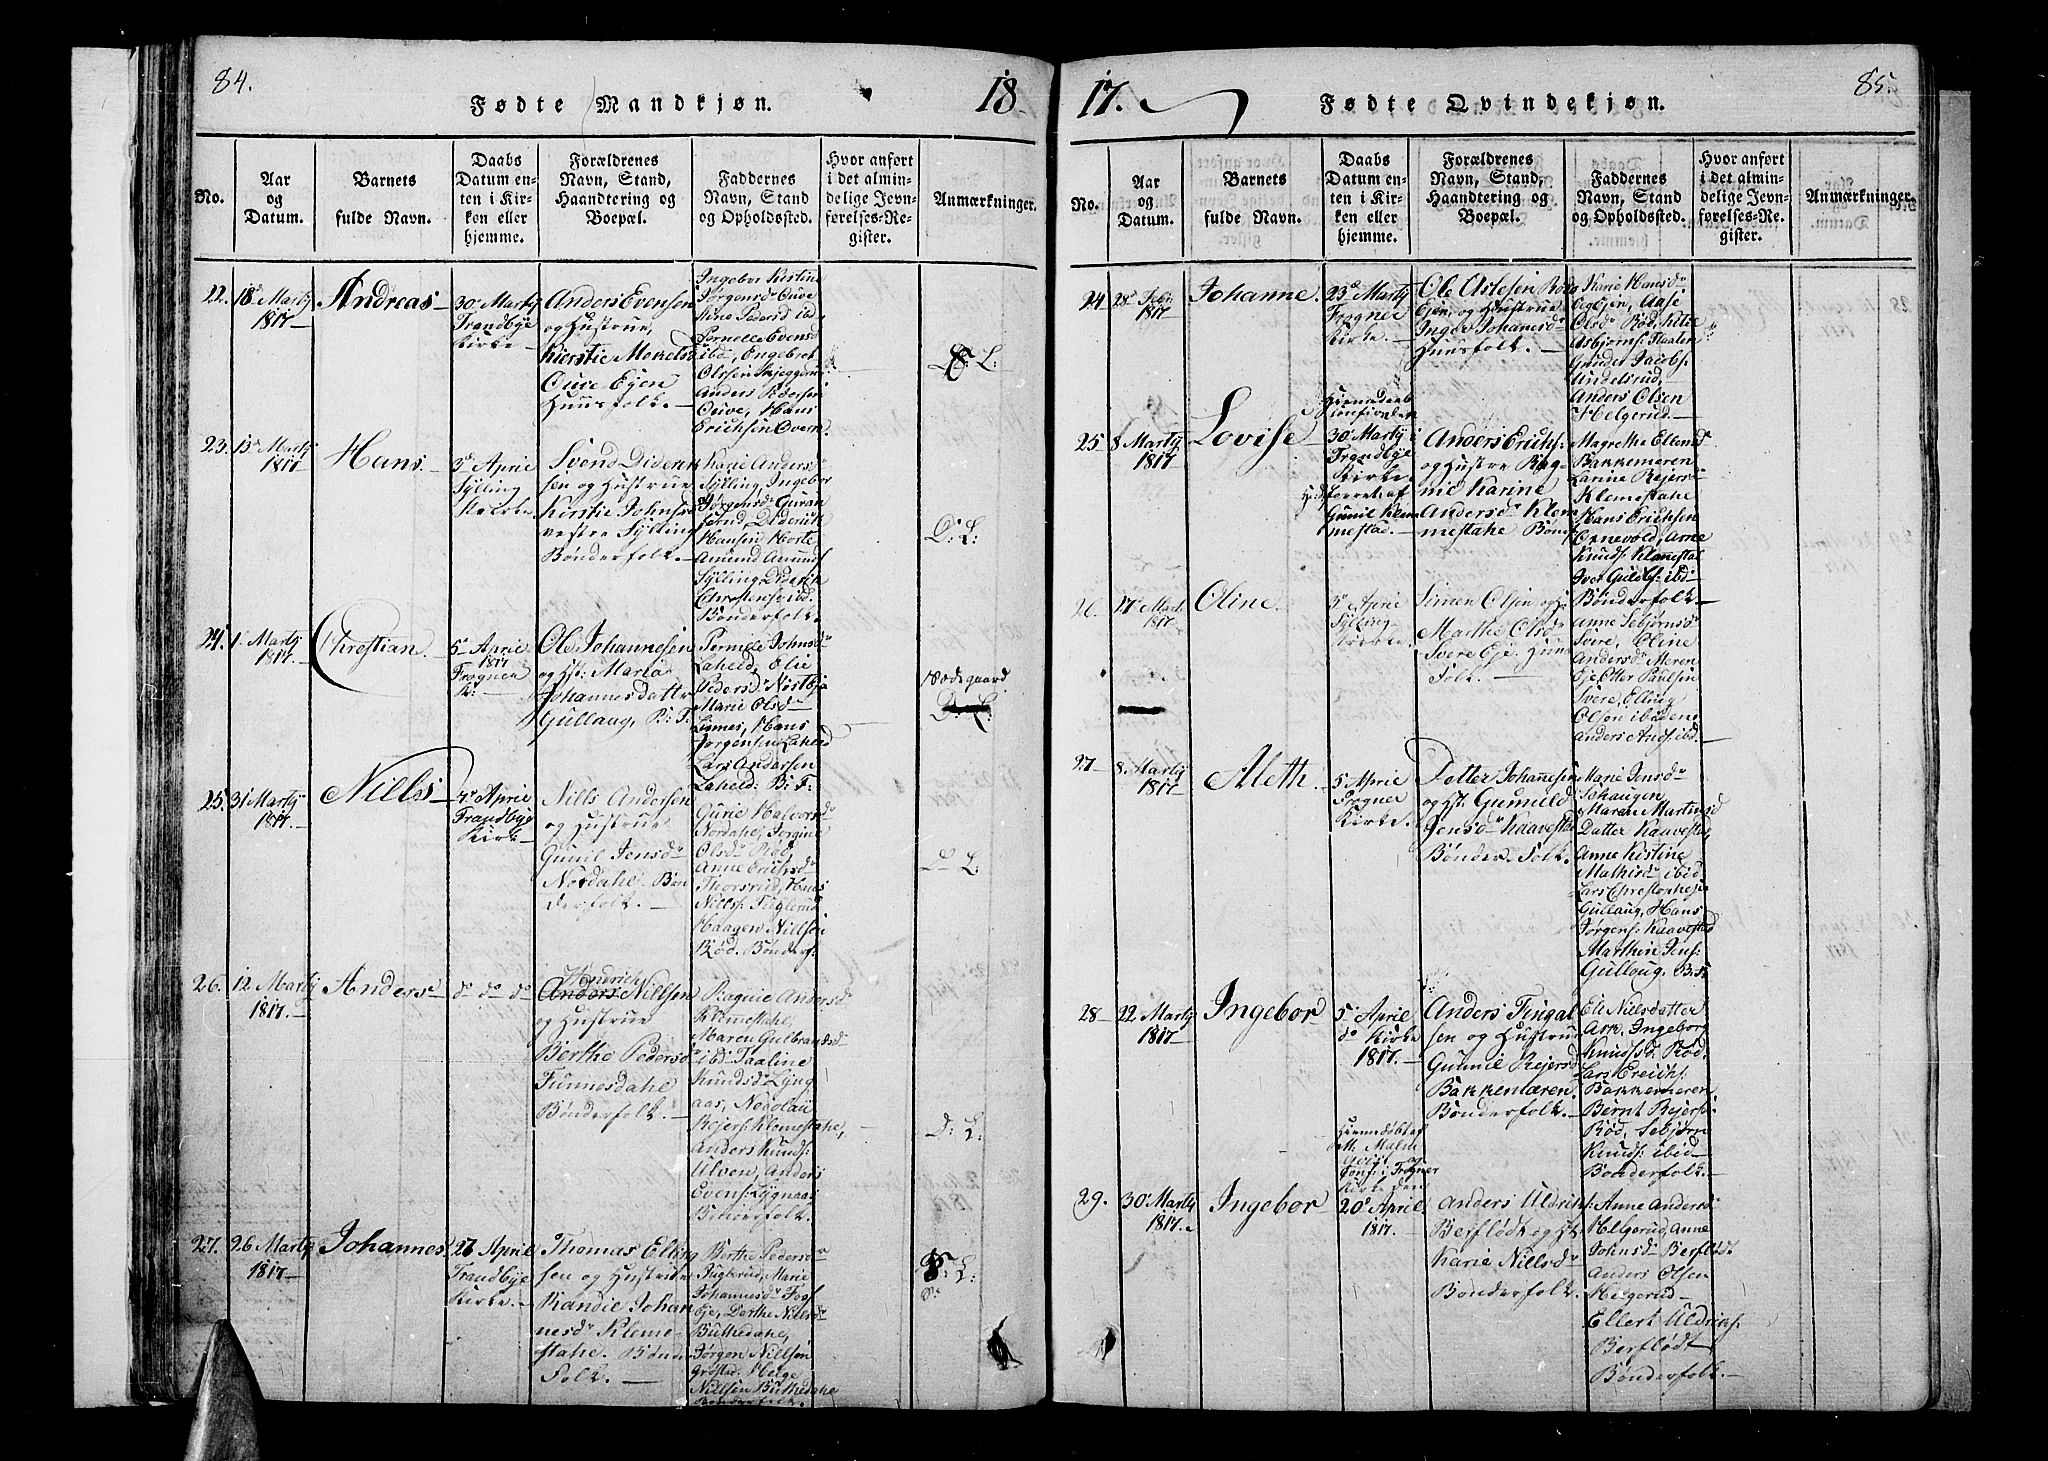 84.
18
Fødte Mandkjøn.
No.
Aar
og
Datum.
Barnets
fulde Navn.
Daabs
Datum en-
ten i Kir-
ken eller
hjemme.
Forældrenes
Navn, Stand,
Haandtering og
Boepæl.
Faddernes
Navn, Stand
og Opholdssted.
Hvor anført
i det almin-
delige Jevn-
førelses-Re-
gister.
Anmærkninger.
22. 18de Martÿ
1817
Andreas
30te Martÿ
Trandbye
Kirke
Anders Evensen
og Hustrue,
Kierstie
Ouve Ejen
Huusfolk.
Ingebor Kistine
Jørgensdr Ouve
Pernelle Evensd
ibd, Engebret
Olssen
Anders Pedersen
Ouve, Hans
Ericksen Overn.
L:
23. 15de Martÿ
1817
Hans
3de Aprie
Sylling
Kirke
Svend Diderik
sen og Hustrue
Kirstie Johnsd
vestre Sylling
Bønderfolk.
Karie Andersdr
Sylling, Ingebor
Jørgensdr
Diderik
Hansen Horte
Amund Amunds
Sylling, Diderik
Christens: ibd.
Bønderfolk.
D: L:
24. 1. Martÿ
1817
Chrestian
5te Aprie
1817
Frogner
K:
Ole Johannesen
og Hst: Maria
Johannesdatter
Gullaug, B: F:
Pernille Johnsdr
Laheld, Olie
Pedersdr Nøstbje
Marie Olsdr
Linnes, Hans
Jørgensen Laheld
Lars Andersen
Laheld. B: F:
Ødegaard
D: L:
25. 31 Martÿ
1817.
Nills
4de Aprie
Trandbye
Kirke
Nills Andersen
og Hustrue
Gunil Jensdr
Nordahe. Bøn
derfolk.
Gurie Halvorsd
Nordahe, Jørgine
Olsdr Rød
Anne Ericksd
Thorsrud, Hans
Nills: Fuglerud
Haagen Nillsen
Rød. Bønderf:
D L:
26. 12 Martÿ
1817.
Anders
do do do
Hendrich
Anders Nillsen
og Hustrue
Berthe Pedersd
Funnesdahe
Bønderfolk.
Ragnie Andersdr
Klemestahe,
Maren Gulbrandsd
ibd Taaline
Knudsdr Lÿng
aas, Nicolaii
Rejers: Klemestahe,
Anders Knuds:
Ulven, Anders
Evens: Lÿgnaas
Bønderfolk.
D: L:
27. 26 Martÿ
1817
Johannes
27 Aprie
Trandbye
Kirke.
Thomas Elling
sen og Hustrue
Randie Johan
nesdr Kleme-
stahe. Bønder
Folk.
Berthe Pedersdr
Fuglerud, Marie
Johannesdr Fos
Eje, Dorthe Nillsdr
Buthedahe,
Jørgen Nillsen
Grøstad, Helge
Nillsen Buthedahe
Bønderfolk.
L:
17.
Fødte Qvindekjøn.
85.
No.
Aar
og
Datum.
Barnets
fulde Navn.
Daabs
Datum en-
ten i Kir-
ken eller
hjemme.
Forældrenes
Navn, Stand,
Haandtering og
Boepæl.
Faddernes
Navn, Stand
og Opholdssted.
Hvor anført
i det almin-
delige Jevn-
førelses-Re-
gister.
Anmærkninger.
24 28de Febr
1817
Johanne
23de Martÿ
Frogner
Kirke
Ole Aslesen Rød
Ejen, og Hustrue
Inger Johannesdr
Huusfolk.
Karie Hansdr
Aase
Olsdr Rød, Kitie
Asbjørns: Staalen
Gunder Jacobs:
Undelsrud,
Anders Olsen
Helgerud.
25 8 Martÿ
1817
Lovise
Hiemmedaab
Confirmeret
30te Martÿ i
Trandbye
Kirke.
forret. af
Gunil Klem
mestad.
Anders Ericks:
og Hustre Rag-
nie Karine
Andersdr Klem
mestahe Bønd
Magrethe Ellensd
Bakkemeren
Larine Rejers
Klemestahe
Hans Ericksen
Ornevold, Arne
Knuds: Klemestad
Iver Guldbs: ibd
Bønderfolk.
26. 17de Mart.
1817
Oline
3de Aprie
Sylling
Kirke
Simen Olsen og H:
Marthe Olsdr
Svere Eje. Huus
Folk.
Anne Sebjørnsdr
Svere, Oline
Andersdr Meren
Eje Otter Paulsen
Svere, Elling
Olsen ibiden
Anders Ands: ibd.
27 8. Martÿ
1817
Aleth
5 Aprie
Frogner
Kirke.
Petter Johannesen
og Hst. Gunuild
Jensdr Kaavestad
Bønder. Folk.
Marie Jensdr
Johaugen
Maren Martinsd
Datter Kaavestad
Anne Kistine
Mathisdr ibid
Lars Christophesen
Gullaug, Hans
Jørgens: Kaavestad
Marthin Jens:
Gulloug. B: F:
28 22 Martÿ
1817
Ingebor
5 Aprie
do Kirke
1817.
Anders Fingal
sen og Hustrue
Gunnil Rejersd
Bakkemæren.
Bønderfolk.
Eli Nielsdatter
Ask, Ingeborg
Knudsd: Rød.
Lars Erichs.
Bakkemeren
Bernt Rejers:
Rød, Sebjørn
Knuds: ibid
Bønderfolk.
29. 30te Martÿ
1817.
Ingebor
Hiemmedøbt af
M. Malm
Qvist og
Conf: i Frogner
Kirke den
20de Aprie
1817.
Anders Uldrich:
Berflødt og Hst
Karie Nillsdr
Bønderfolk.
Anne Andersd
Helgerud, Anne
Johnsdr Berflødt
Anders Olsen
Helgerud
Ellert Uldrichs:
Berflødt
Bønderfolk.